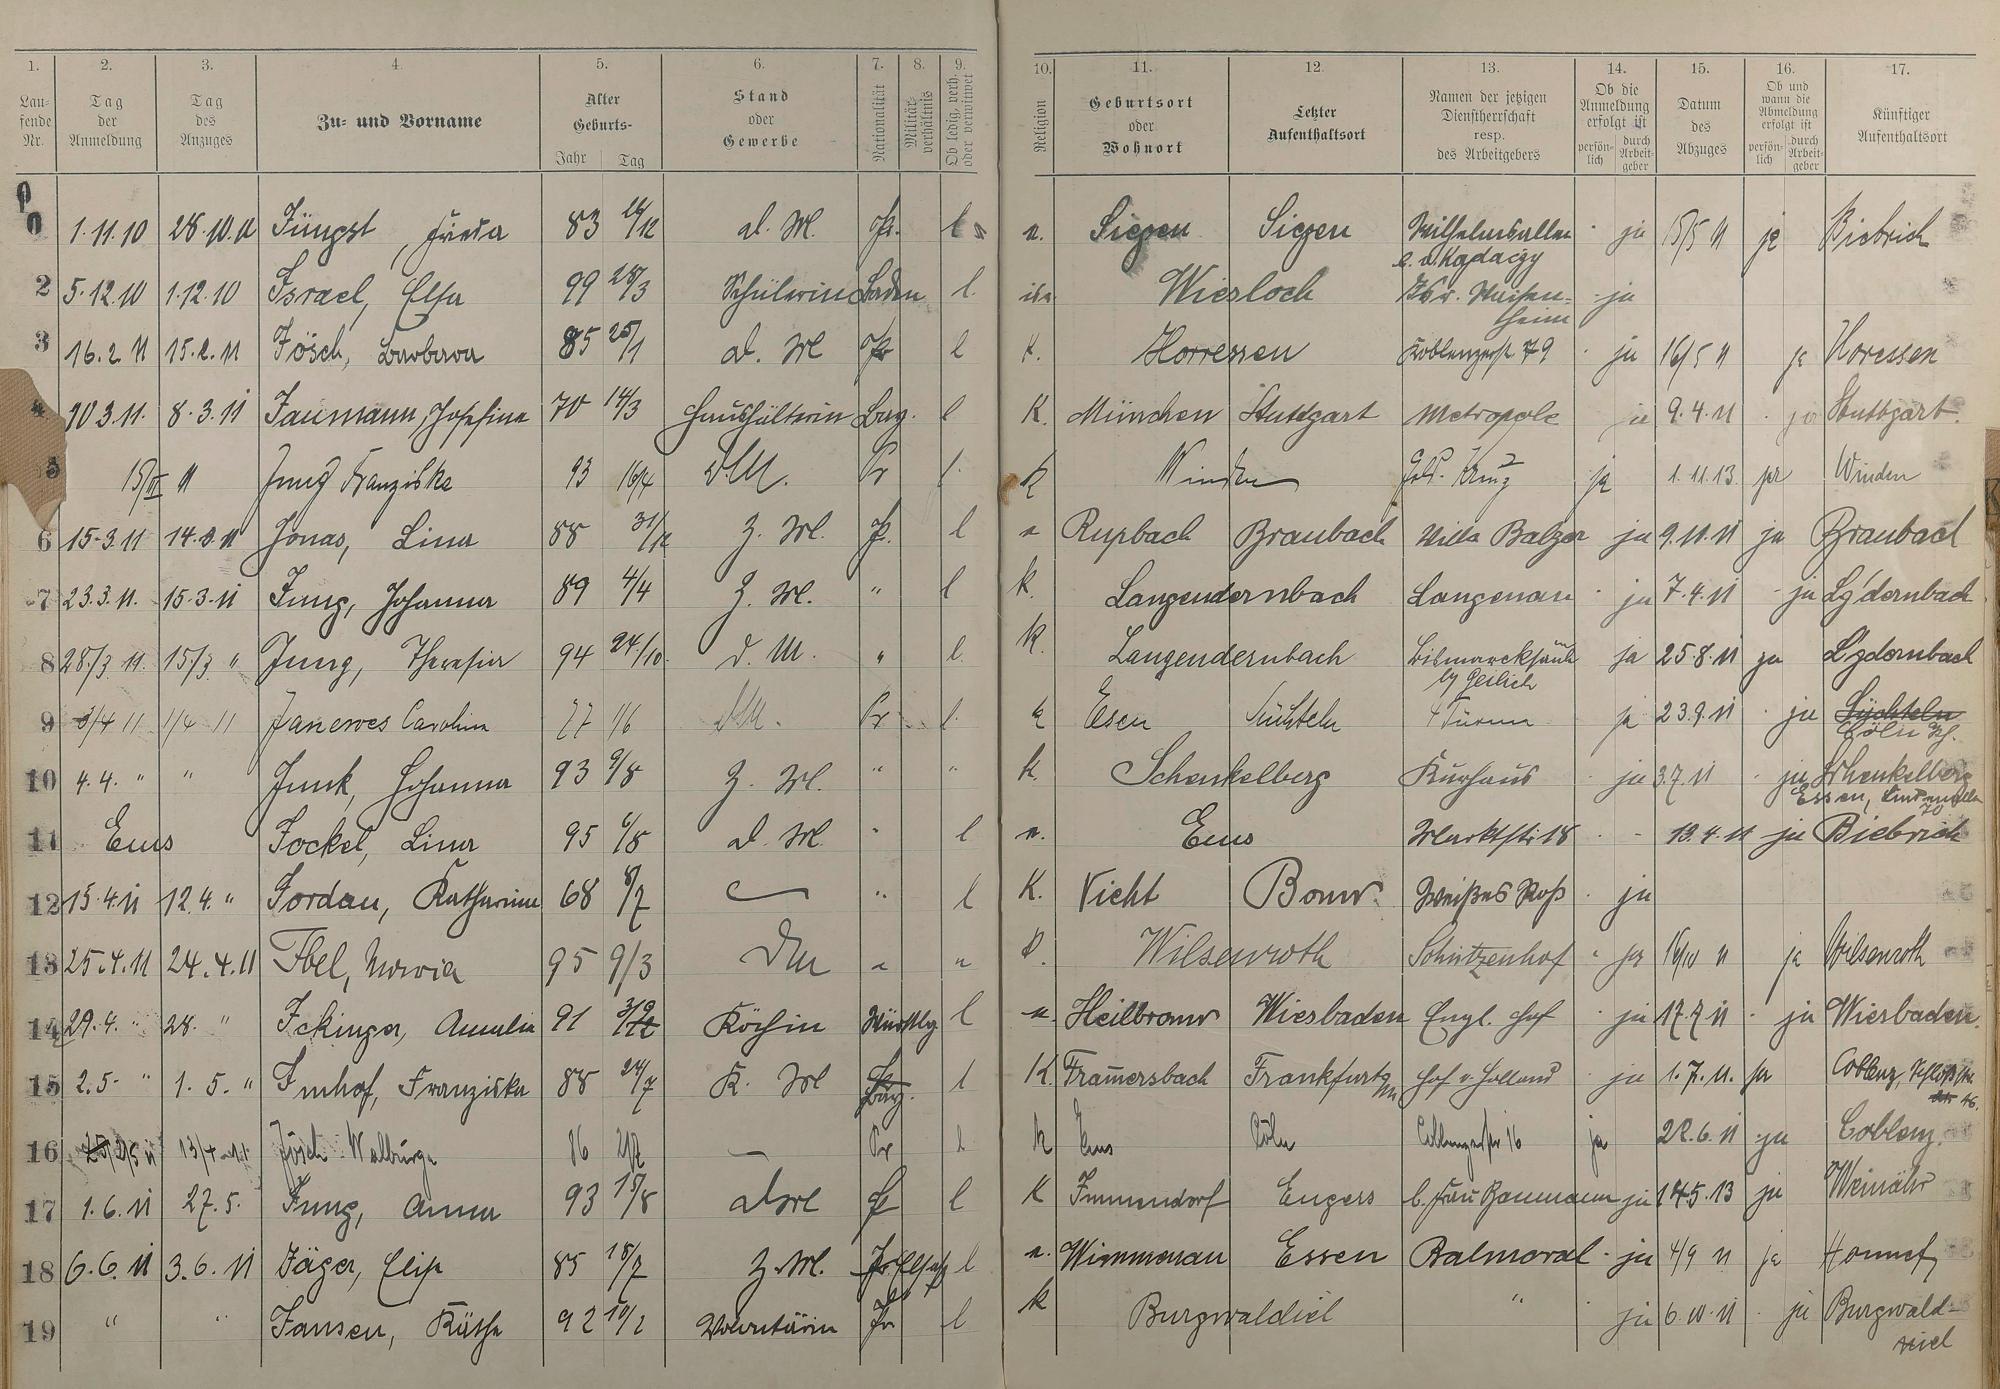 1. 2. 3. 4. 5. 6. 7. 8. 9. 10. 11. 12. 13. 14. 15. 16. 17.
Lau-
fende
Nr.
Tag
der
Anmeldung
Tag
des
Anzuges
Zu- und Vorname
Alter
Geburts-
Jahr Tag
Stand
oder
Gewerbe
Nationalität
Militär-
verhältnis
Ob ledig, verh.
oder verwitwet
Religion
Geburtsort
oder
Wohnort
Letzter
Aufenthaltsort
Namen der jetzigen
Dienstherrschaft
resp.
des Arbeitgebers
Ob die
Anmeldung
erfolgt ist
persön-
lich
durch
Arbeit-
geber
Datum
des
Abzuges
Ob und
wann die
Abmeldung
erfolgt ist
persön-
lich
durch
Arbeit-
geber
Künftiger
Aufenthaltsort
1.11.10 28.10.10 Jüngst, Frieda 83 d. M. Pr. l Siegen Siegen Wilhelmsallee ja 15/5 11 ja Biebrich
2 5.12.10 1.12.10 Israel, Elsa 99 28/3 Schülerin Baden l. isr. Wiesloch ja
3 16.2.11 15.2.11 Jösch, Barbara 85 25/1 d. M Pr l K. Horressen Koblenzerstr 79 ja 16/5 11 ja Horessen
4 10.3.11. 8.3.11 Jaumann, Josefine 70 14/3 Haushälterin Bay. l K. München Stuttgart Metropole ja 9.4.11 ja Stuttgart.
5 15/III 11 Jung Franziska 93 16/4 d.M. Pr l. k Winden Krug ja 1.11.13 ja Winden
6 15.3.11 14.3.11 Jonas, Lina 88 31/12 Z. M. Pr. l Rupbach Braubach Villa Balzer ja 9.11.11 ja Braubach
7 23.3.11. 15.3.11 Jung, Johanna 89 4/4 Z. M. " l k. Langendernbach Langenau ja 7.4.11 ja Lg'dernbach
8 28/3 11. 15/3 " Jung, Theresia 94 24/10. d. M. " l. k. Langendernbach ja 25.8.11 ja L'gdernbach
9 3/4 11 1/4 11 Carolina 77 1/6 d.M. Pr l. Süchteln 4 Türme ja 23.9.11 ja Süchteln
Cöln
10 4.4. " " Junk, Johanna 93 9/8 Z. M. " " k. Schenkelberg Kurhaus ja 3.7.11 ja Schenkelberg
Essen,
11 Ems Jockel, Lina 95 6/8 d. M. " l Ems Marktstr. 18 13.4.11 ja Biebrich
12 15.4.11 12.4. " Jordan, Katharina 68 8/7 " l K. Vicht Bonn. Weißes Roß ja
13 25.4.11 24.4.11 Ibel, Maria 95 9/3 DM " " Wilsenroth Schützenhof " ja 16/10 11 ja Wilsenroth
14 29.4. " 28. " Ickinger, Amalia 91 Köchin Württbg l Heilbronn Wiesbaden Engl. Hof ja 17.7.11 ja Wiesbaden.
15 2.5. " 1.5. " Imhof, Franziska 88 24/7 K. M Bay. l K. Fram̅ersbach Frankfurt a/M Hof v. Holland ja 1.7.11. ja Coblenz,
46.
16 13/4 Jösch Walburga 86 Pr l k Ems Cöln Coblenzerstr 16 ja 22.6.11 ja Coblenz.
17 1.6.11 27.5. Jung, Anna 93 15/8 d M Pr l K Immendorf Engers b. Frau Baumann ja 14.5.13 ja Weinähr
18 6.6.11 3.6.11 Jäger, Elise 85 18/7 Z. M. Pr. Elsaß l Wimmenau Essen Balmoral ja 4/9 11 ja Honnef
19 " " Jansen, Käthe 92 10/2 Volontärin Pr l k Burgwaldniel " ja 6.10.11 ja Burgwald-
niel